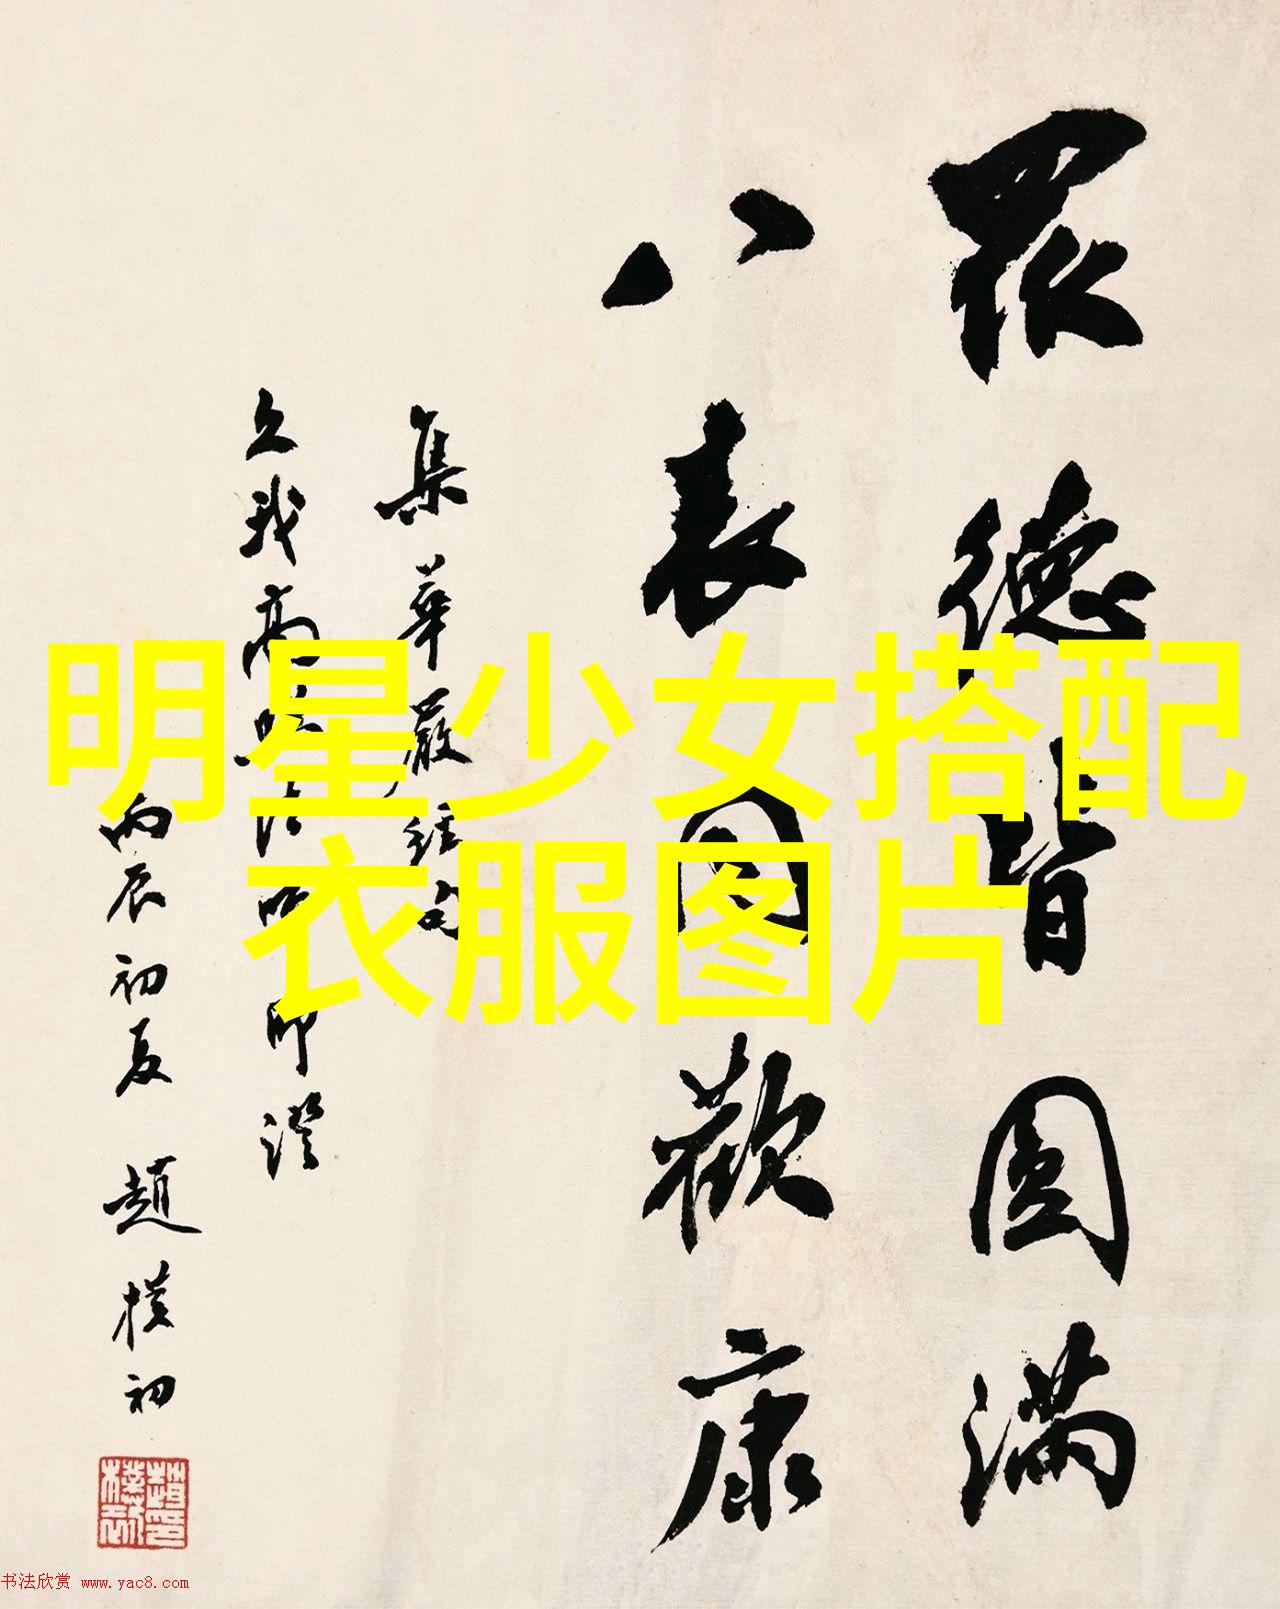 眾德皆圓滿
八表同歡康
集華嚴經句
久我高
丙辰初夏 趙樸初
明星少女搭配
衣服图片
书法欣赏 www.yac8.com